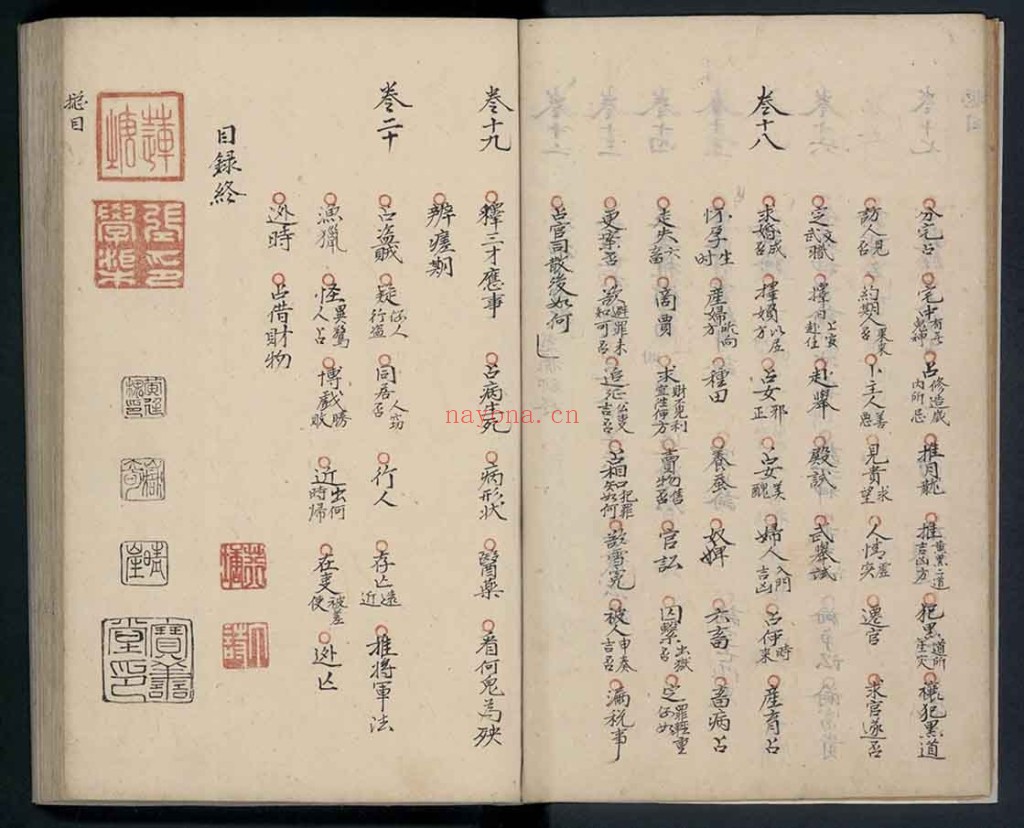 分宅占 宅中有無鬼神 占修造威内所忌 推月龍 推黄黒二道吉凶方 犯黒道所主灾 禳犯黒道
訪人見否 約期人果来否 卜主人善惡 見貴求望 人情虚实 遷官 求官遂否
文武職 擇日上官赴任 赴舉 殿試 武舉試
卷十八 求婚成否 擇婦以居方 占女邪正 占女美醜 婦人入門吉凶 占何時来 産育占
怀孕生时 産婦所向方 種田 養蚕 奴婢 六畜 畜病占
走失六畜 商賈 求財來兊利 賣物售物否 官訟 囚繫出獄否 定罪輕重何如
更業否 欲避罪未知可否 追逃公吏人吉否 占相犯罪知如何 訴雪冤 被人申奏吉否 漏税事
占官司散後如何
卷十九 釋三才應事 占病生死 病形状 醫藥 看何鬼為殃
辨瘥期
卷二十 占盗賊 疑何人行盗 同居人竊否 行人 存亡遠近 推將軍法
漁獵 怪異驚人占 博戲勝敗 近出何時歸 在吏被差使 逃亡
逃時 占借財物
目録終
總目
蓮塘
寶善堂印
nayona.cn